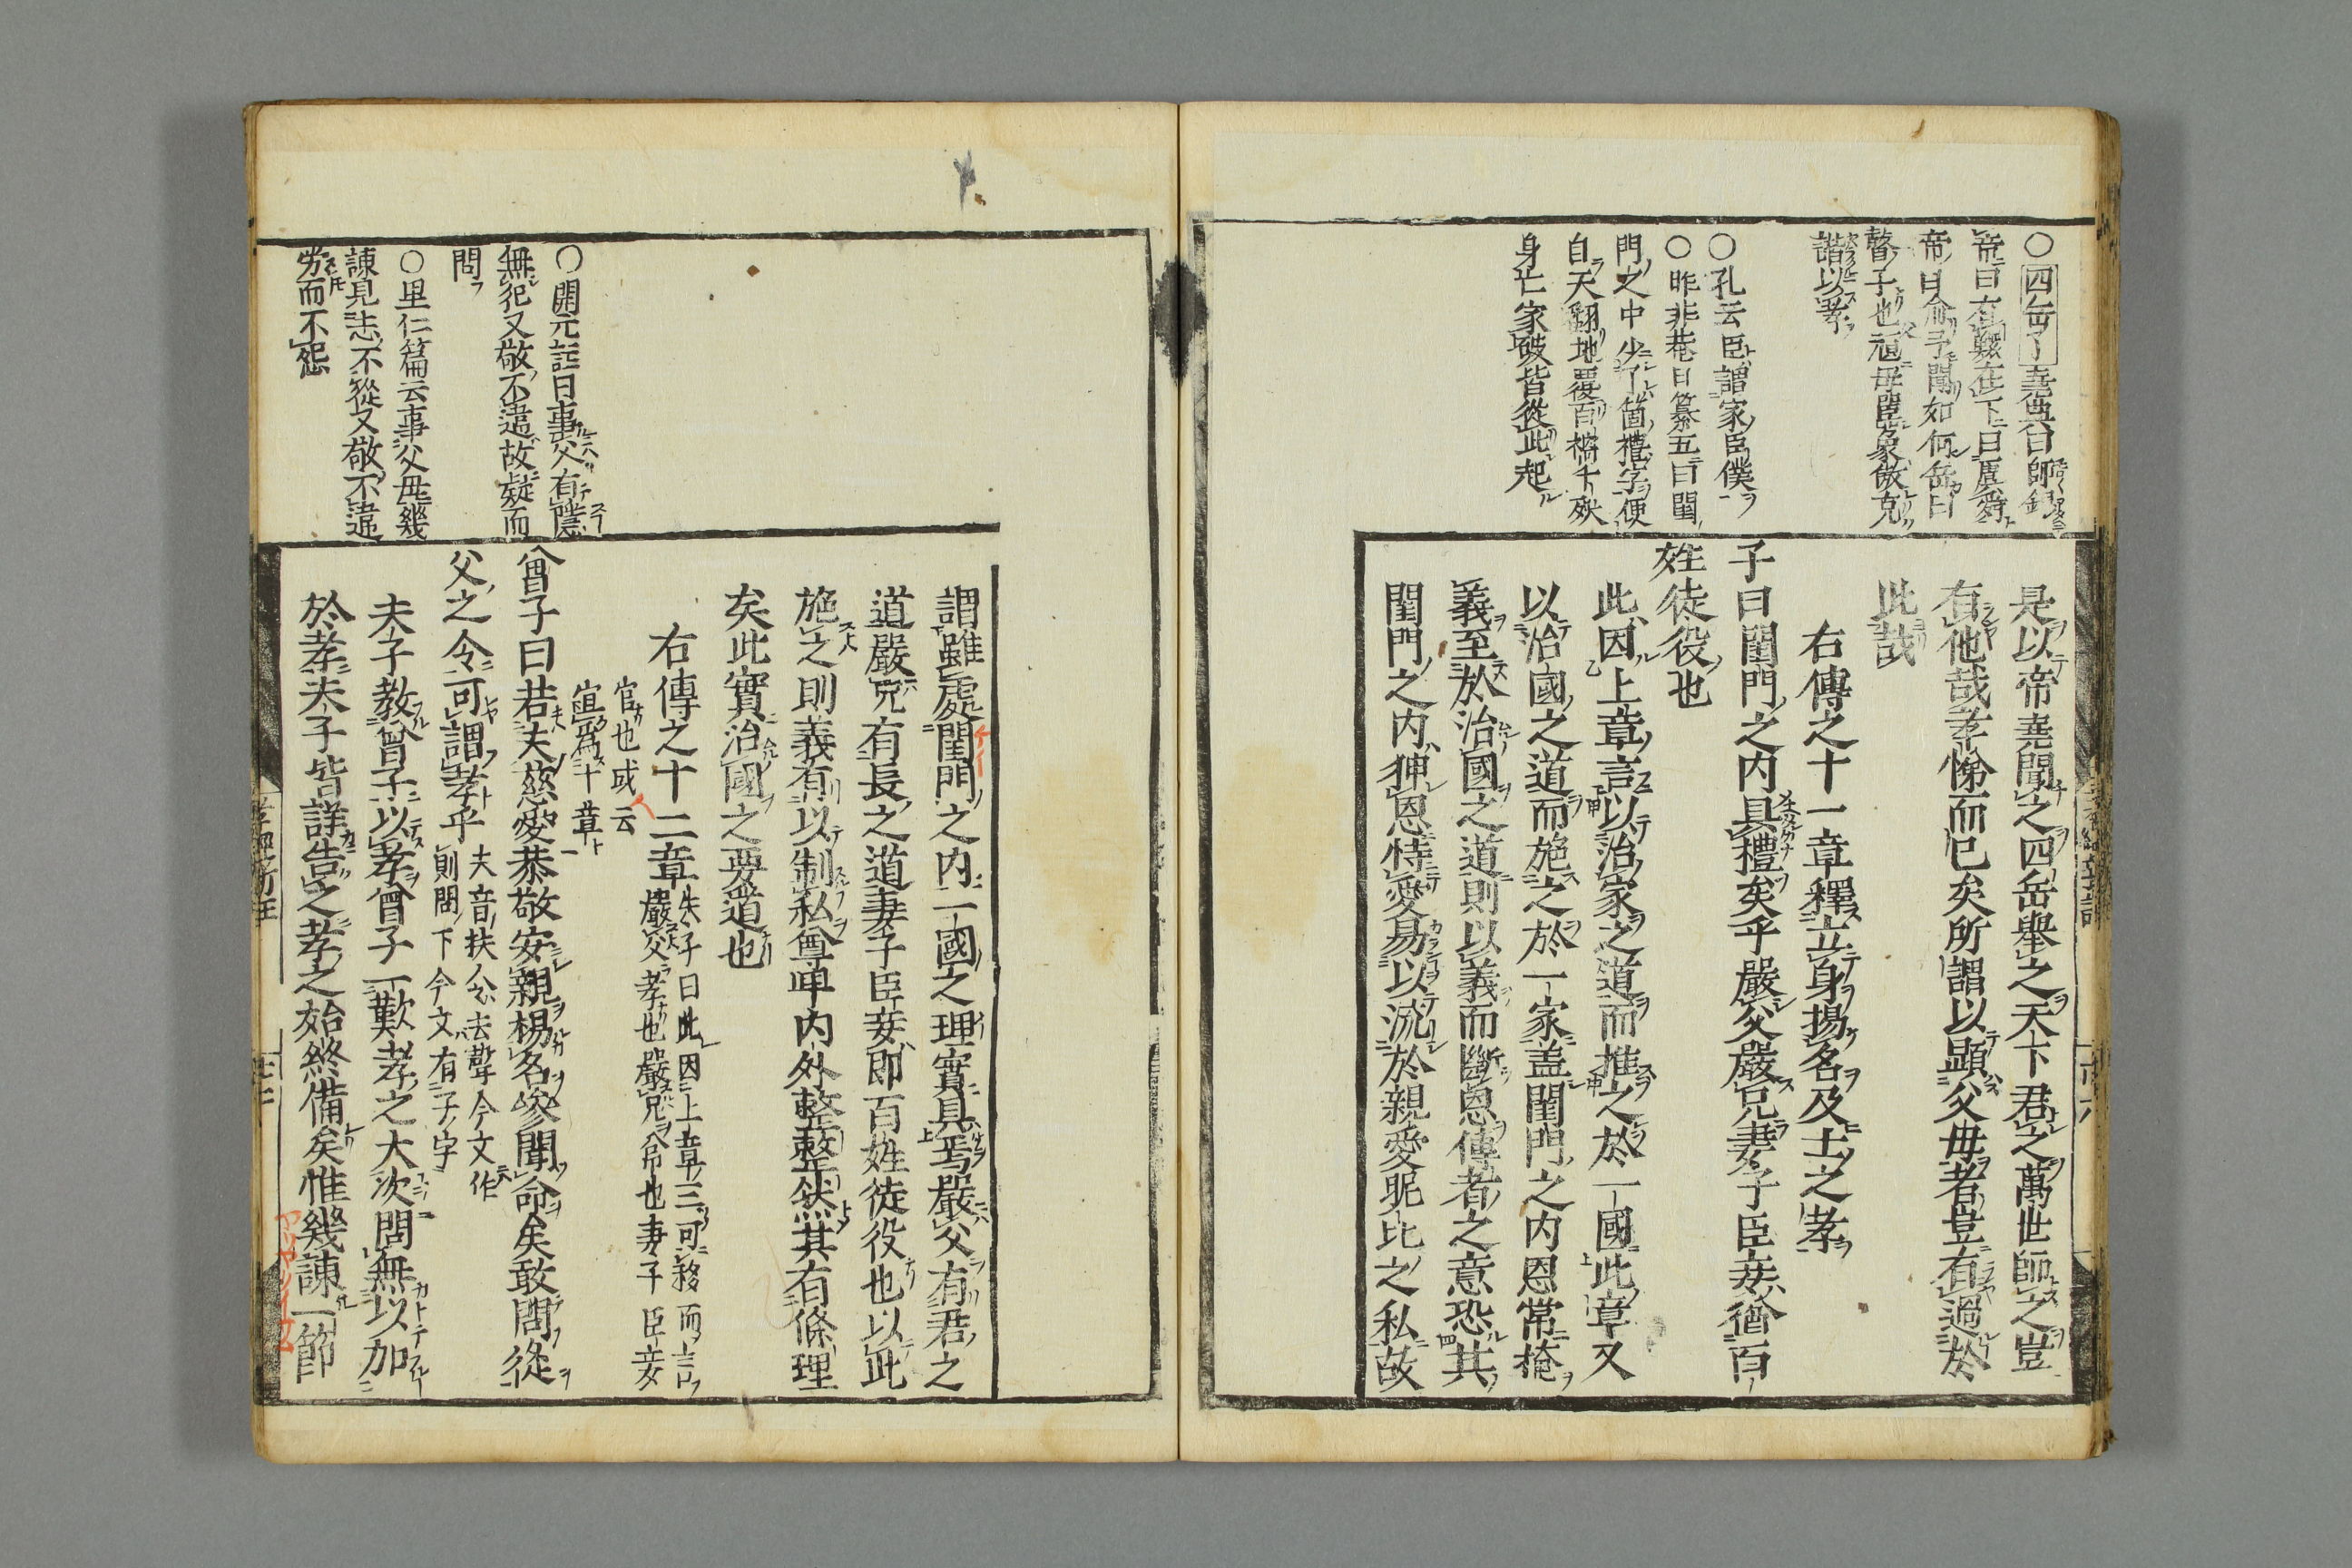 ○四岳了堯典曰師錫
帝曰有鰥在下曰虞舜
帝曰俞予聞如何岳曰
瞽子也頑母嚚象傲克
諧以孝
○孔云臣謂家臣僕
○昨非菴日纂五曰閨
門之中少了箇禮字便
自天翻地覆百禍千殃
身亡家破皆從此起
是以帝堯聞之四岳舉之天下君之萬世師之豈
有他哉孝悌而已矣所謂以顯父母者豈有過於
此哉
右傳之十一章釋立身揚名及士之孝
子曰閨門之内具禮矣乎嚴父嚴兄妻子臣妾猶百
姓徒役也
此因上章言以治家之道而推之於一國此章又
以治國之道而施之於一家盖閨門之内恩常掩
義至於治國之道則以義而斷恩傳者之意恐其
閨門之内狎恩恃愛易以流於親愛昵比之私故
○開元註曰事父有隱
無犯又敬不違故疑而
問
○里仁篇云事父母幾
諫見志不從又敬不違
勞而不怨
謂雖處閨門之内一國之理實具焉嚴父有君之
道嚴兄有長之道妻子臣妾即百姓徒役也以此
施之則義有以制私尊卑内外整整然其有條理
矣此實治國之要道也
右傳之十二章朱子曰此因上章三可移而言
嚴父孝也嚴兄弟也妻子臣妾
官也或云
宜為十章
曾子曰若夫慈愛恭敬安親揚名參聞命矣敢問從
父之令可謂孝乎夫音扶令去聲今文作
則聞下今文有子字
夫子教曾子以孝曾子一歎孝之大次問無以加
於孝夫子皆詳告之孝之始終備矣惟幾諫一節